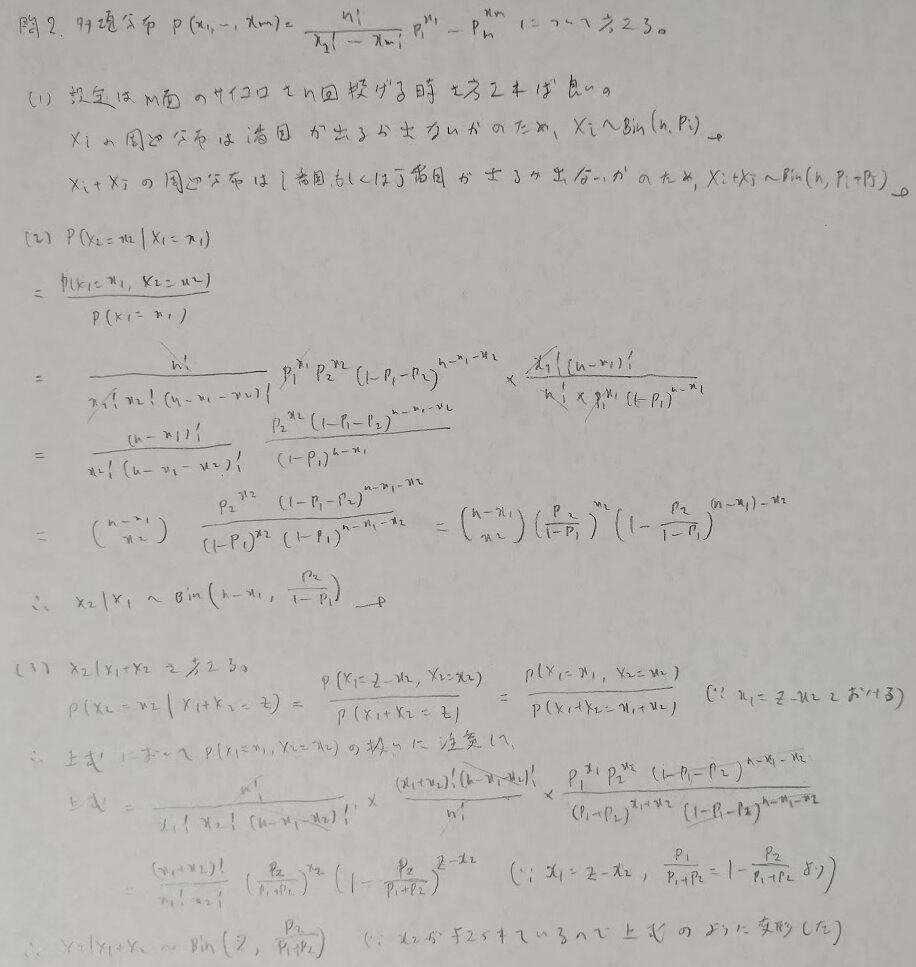 問2. 多項分布 P(x₁, …, xₘ) = n!/(x₁! … xₘ!) p₁^x₁ … pₙ^xₘ について考える。
(1) 設定は m面のサイコロをn回投げる時を考えれば良い。
Xi の周辺分布は i番目が出るか出ないかのため, Xi ~ Bin(n, Pi)
Xi+Xj の周辺分布は i番目もしくはj番目が出るか出ないかのため, Xi+Xj ~ Bin(n, Pi+Pj)
(2) P(X₂=x₂ | X₁=x₁)
= P(X₁=x₁, X₂=x₂) / P(X₁=x₁)
= n!/(x₁! x₂! (n-x₁-x₂)!) P₁^x₁ P₂^x₂ (1-P₁-P₂)^(n-x₁-x₂) × x₁!(n-x₁)! / (n! × P₁^x₁ (1-P₁)^(n-x₁))
= (n-x₁)!/(x₂! (n-x₁-x₂)!) P₂^x₂ (1-P₁-P₂)^(n-x₁-x₂) / (1-P₁)^(n-x₁)
= (n-x₁ x₂) P₂^x₂ (1-P₁-P₂)^(n-x₁-x₂) / ((1-P₁)^x₂ (1-P₁)^(n-x₁-x₂)) = (n-x₁ x₂) (P₂/(1-P₁))^x₂ (1 - P₂/(1-P₁))^((n-x₁)-x₂)
∴ X₂|X₁ ~ Bin(n-x₁, P₂/(1-P₁))
(3) X₂|X₁+X₂ を考える。
P(X₂=x₂ | X₁+X₂=z) = P(X₁=z-x₂, X₂=x₂) / P(X₁+X₂=z) = P(X₁=x₁, X₂=x₂) / P(X₁+X₂=x₁+x₂) (∵ x₁=z-x₂ とおける)
∴ 上式において P(X₁=x₁, X₂=x₂) の扱いに注意して,
上式 = n!/(x₁! x₂! (n-x₁-x₂)!) × (x₁+x₂)!(n-x₁-x₂)!/n! × P₁^x₁ P₂^x₂ (1-P₁-P₂)^(n-x₁-x₂) / ((P₁+P₂)^(x₁+x₂) (1-P₁-P₂)^(n-x₁-x₂))
= (x₁+x₂)!/(x₁! x₂!) (P₂/(P₁+P₂))^x₂ (1 - P₂/(P₁+P₂))^(z-x₂) (∵ x₁=z-x₂, P₁/(P₁+P₂) = 1 - P₂/(P₁+P₂) より)
∴ X₂|X₁+X₂ ~ Bin(z, P₂/(P₁+P₂)) (∵ x₂が与えられているので上式のように変形した)